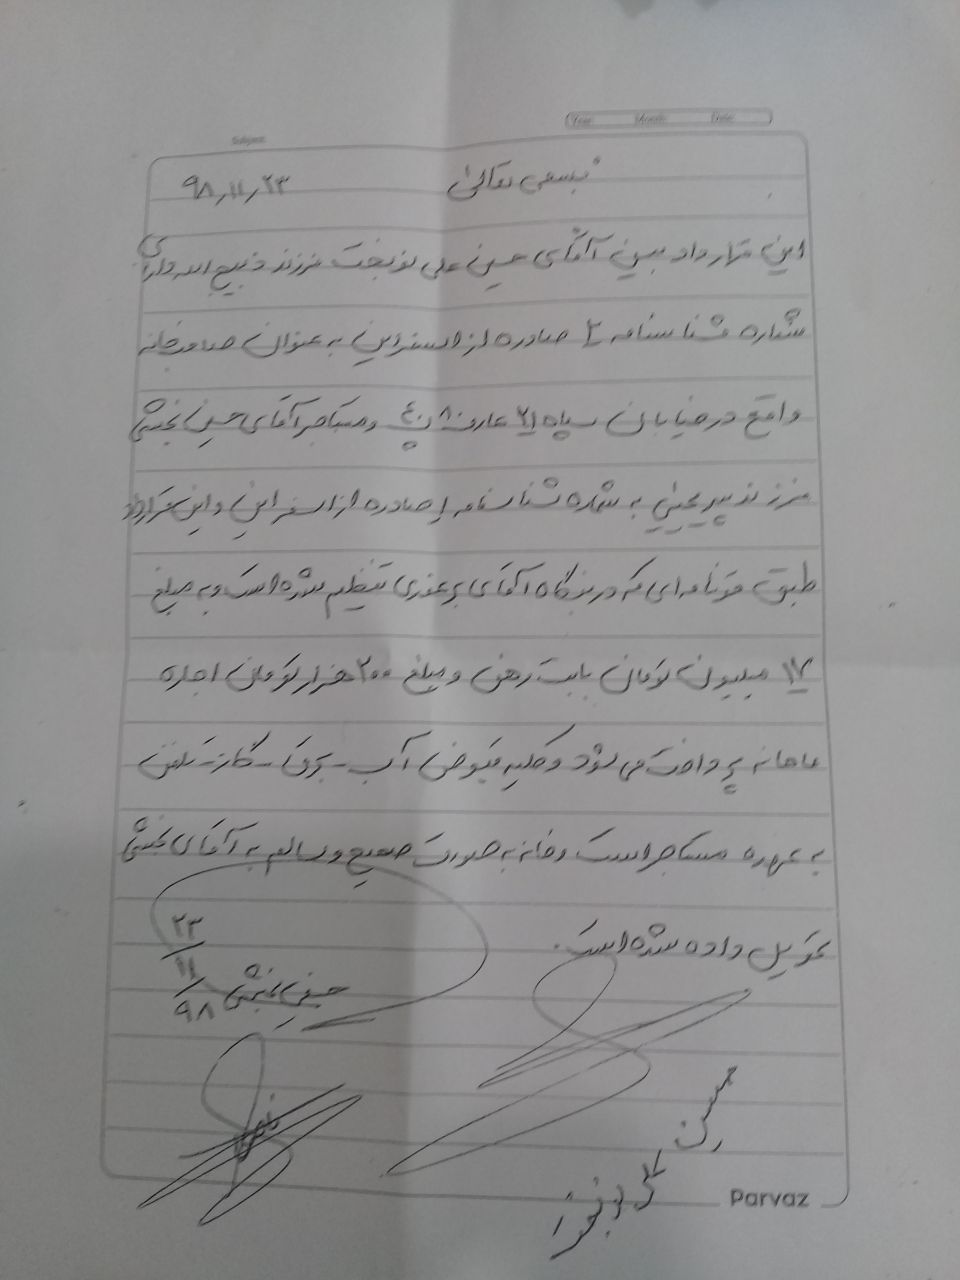 Subject:
Year: Month: Date:
بسمی تعالی ۹۸/۱۱/۲۳
این قرارداد بین آقای حسین علی نوبخت فرزند ذبیح اله دارای
شماره شناسنامه ۲ صادره از اسفراین به عنوان صاحبخانه
واقع در خیابان سپاه ۲۱ عارف ۸ پ ۴۰ و مستاجر آقای حسین بخشی
فرزند به شماره شناسنامه ۱ صادره از اسفراین و این قرارداد
طبق قولنامه ای که در بنگاه آقای تنظیم شده است و به مبلغ
۱۷ میلیون تومان بابت رهن و مبلغ ۲۰۰ هزار تومان اجاره
ماهانه پرداخت می شود و کلیه قبوض آب - برق - گاز - تلفن
به عهده مستاجر است و خانه به صورت صحیح و سالم به آقای بخشی
تحویل داده شده است.
۲۳/۱۱/۹۸
حسین بخشی
حسین علی نوبخت
Parvaz